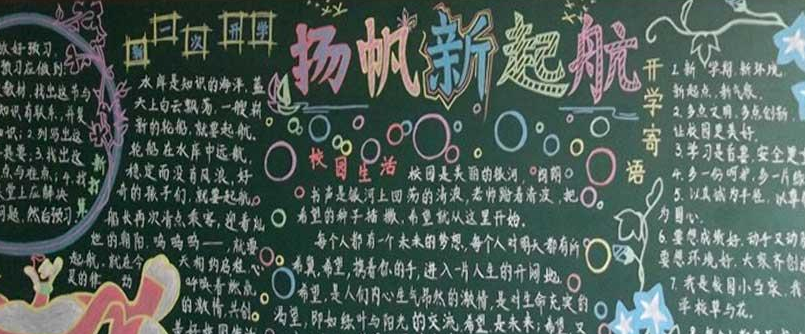 扬帆新起航
新一次开学
做好预习
预习应做到:
教材,找出这节
知识有联系,并复
知识;2.列写出这
提要;3.找出这
点与难点;4.
堂上应解决
问题,然后预习
水岸是知识的海洋,蓝
天上白云飘荡,一艘崭
新的轮船,就要起航。
轮船在水库中远航,
稳定而没有风浪,好
奇的孩子们,就要起航。
船长再次清点乘客,迎着
的朝阳,呜呜呜——,就要
起航,就在今天相约启程,心
灵的律动
呼唤着激点
的激情,共创
美好校园生活
校园生活
校园是美丽的银河,
书声是银河上回荡的清波,老师踏着清波,把
希望的种子播撒,希望就从这里开始。
每个人都有一个未来的梦想,每个人对明天都有所
希冀,希望,携着你的手,进入一片人生的开阔地。
希望,是人们内心生气昂然的激情,是对生命充实的
渴望,即如绿叶与阳光的交流,希望是未来,希望又
开学寄语
1.新学期,新环境,
新起点,新气象。
2.多点文明,多点创新
让校园更美好。
3.学习是首要,安全更
4.多一份呵护,多一片
5.以真诚为半径,以尊
为圆心。
6.要想成绩好,动手又动
要想环境好,大家齐创
7.我是校园小当家,我
学校草与花。